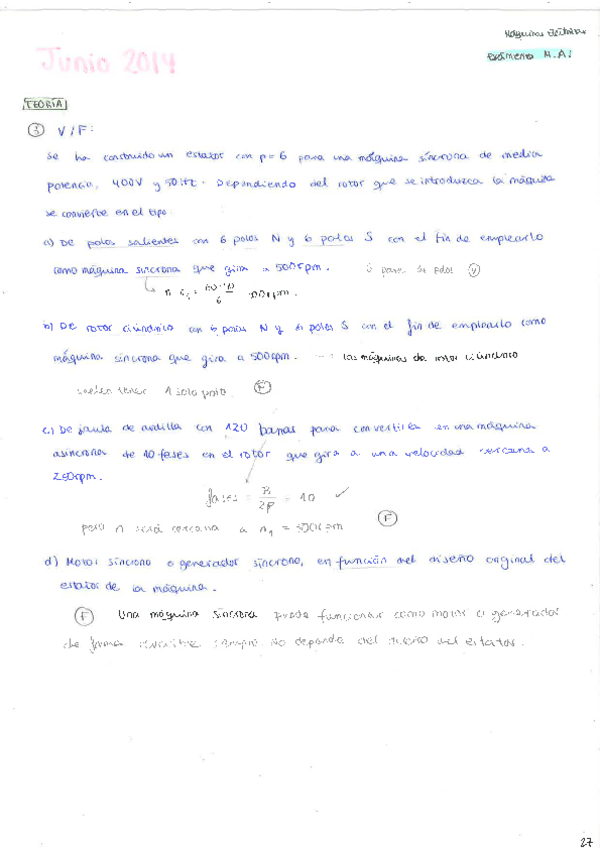 Máquinas Eléctricas
Exámenes M.A:
Junio 2014
TEORÍA
③ V/F:
Se ha construido un estator con p=6 para una máquina síncrona de media
potencia, 400V y 50Hz. Dependiendo del rotor que se introduzca la máquina
se convierte en el tipo:
a) De polos salientes con 6 polos N y 6 polos S con el fin de emplearlo
como máquina síncrona que gira a 500rpm. 6 pares de polos Ⓥ
6
b) De rotor cilíndrico con 6 polos N y 6 polos S con el fin de emplearlo como
máquina síncrona que gira a 500rpm. las máquinas de rotor cilíndrico
suelen tener 1 solo polo. Ⓕ
c) De jaula de ardilla con 120 barras para convertirla en una máquina
asíncrona de 10 fases en el rotor que gira a una velocidad cercana a
250rpm.
fases = / 2p = 10 ✓
pero n será cercana a n₁ = 500rpm Ⓕ
d) Motor síncrono o generador síncrono, en función del diseño original del
estator de la máquina.
Ⓕ Una máquina síncrona puede funcionar como motor o generador
de forma no depende del diseño del estator.
27